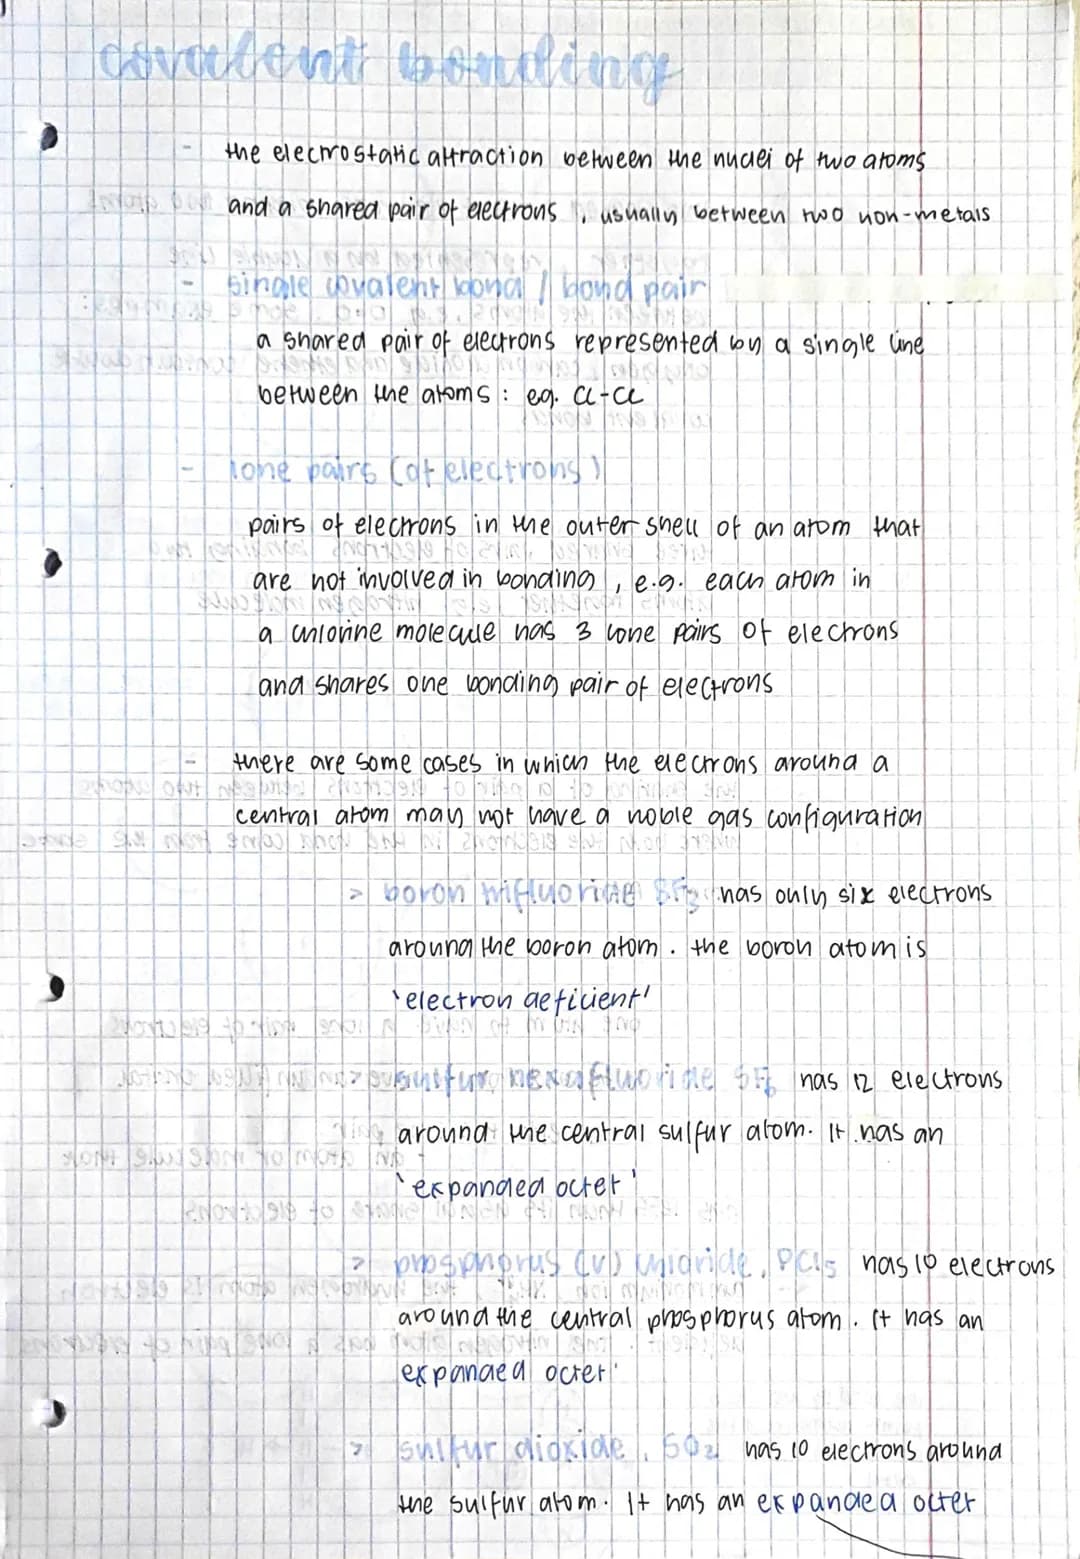 covalent bonding
- the electrostatic attraction between the nuclei of two atoms
and a shared pair of electrons, usually between two non-metals
- single covalent bond / bond pair
a shared pair of electrons represented by a single line
between the atoms: eg. Cl-Cl
- lone pairs (of electrons)
pairs of electrons in the outer shell of an atom that
are not involved in bonding, e.g. each atom in
a chlorine molecule has 3 lone pairs of electrons
and shares one bonding pair of electrons
- there are some cases in which the electrons around a
central atom may not have a noble gas configuration
> boron trifluoride BF3 has only six electrons
around the boron atom. the boron atom is
'electron deficient'
> sulfur hexafluoride SF6 has 12 electrons
around the central sulfur atom. It has an
'expanded octet'
> phosphorus (V) chloride, PCl5 has 10 electrons
around the central phosphorus atom. It has an
expanded octet'
> sulfur dioxide, SO2 has 10 electrons around
the sulfur atom. It has an expanded octet